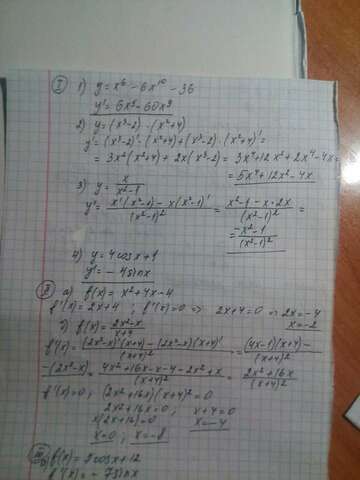 I 1) y = x⁶ - 6x¹⁰ - 36
y' = 6x⁵ - 60x⁹
2) y = (x³-2) · (x²+4)
y' = (x³-2)' · (x²+4) + (x³-2) · (x²+4)' =
= 3x²(x²+4) + 2x(x³-2) = 3x⁴+12x² + 2x⁴-4x =
= 5x⁴ + 12x² - 4x
3) y = x/(x²-1)
y' = (x'(x²-1) - x(x²-1)')/(x²-1)² = (x²-1-x·2x)/(x²-1)² =
= (-x²-1)/(x²-1)²
4) y = 4cosx+1
y' = -4sinx
II а) f(x) = x²+4x-4
f'(x) = 2x+4 ; f'(x)=0 => 2x+4=0 2x=-4
x=-2
б) f(x) = (2x²-x)/(x+4)
f'(x) = ((2x²-x)'(x+4) - (2x²-x)(x+4)')/(x+4)² = ((4x-1)(x+4) -
-(2x²-x))/(x+4)² = (4x²+16x-x-4-2x²+x)/(x+4)² = (2x²+16x)/(x+4)²
f'(x)=0; (2x²+16x)(x+4)²=0
2x²+16x=0; x+4=0
x(2x+16)=0 x=-4
x=0; x=-8
f(x) = 7cosx+12
f'(x) = -7sinx